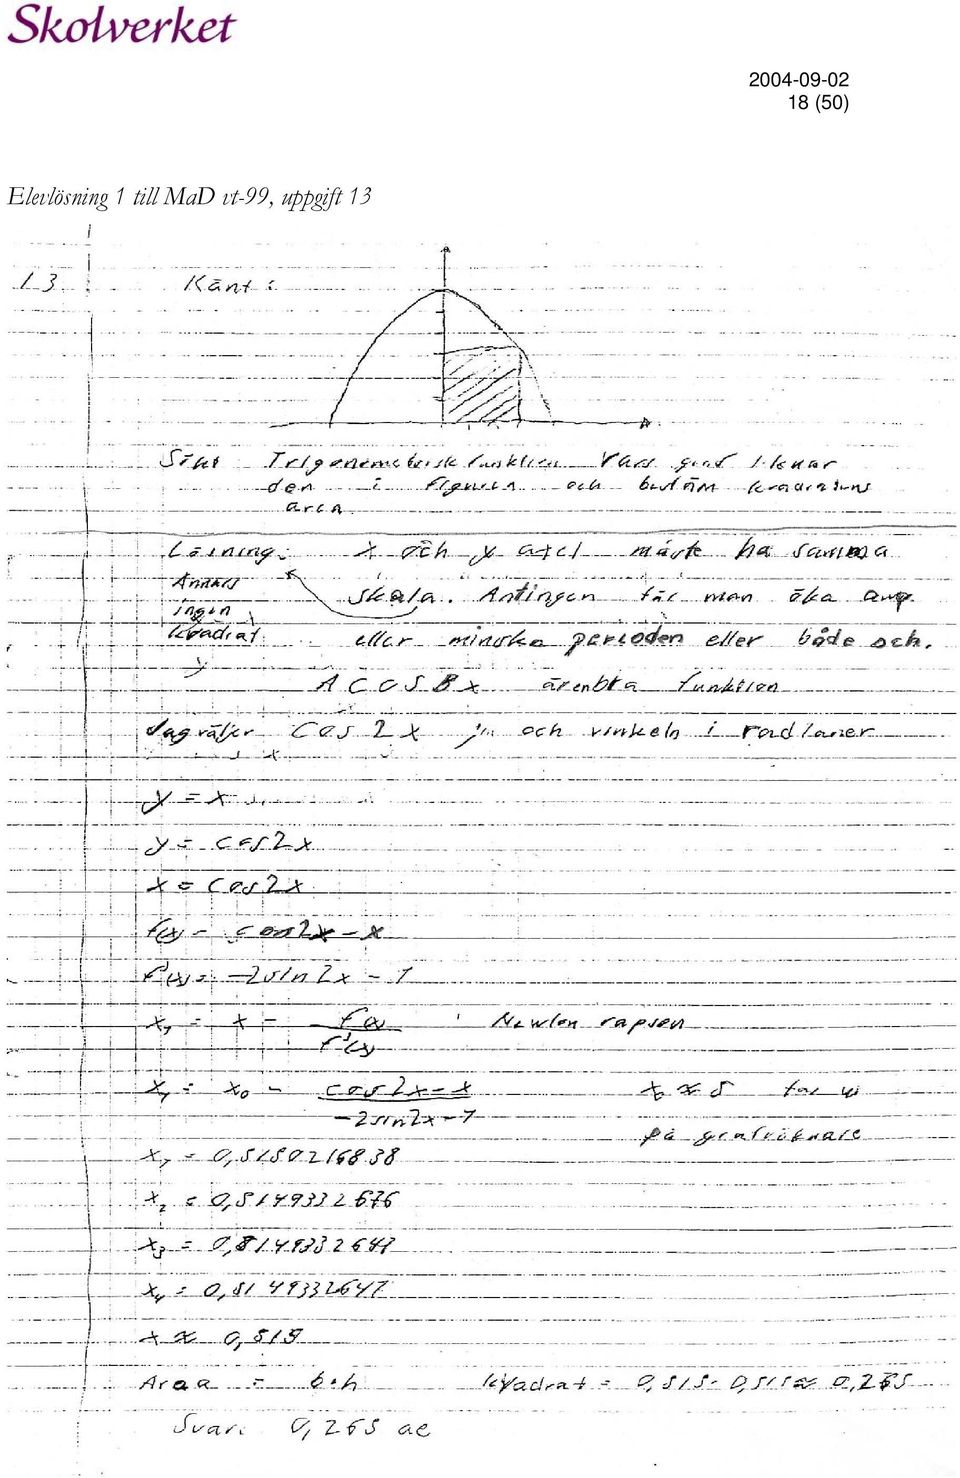 Skolverket
2004-09-02
18 (50)
Elevlösning 1 till MaD vt-99, uppgift 13
13 Känt:
Sökt Trigonometrisk funktion vars graf liknar
den i figuren och bestäm kvadratens
area
Lösning: x och y axel måste ha samma
Annars skala. Antingen får man öka amp.
ingen
kvadrat eller minska perioden eller både och.
A COS Bx är enbra funktion
Jag väljer Cos 2x och vinkeln i radianer
y = x
y = cos2x
x = cos2x
f(x) = cos2x - x
f'(x) = -2sin2x - 1
x₁ = x - f(x)/f'(x) Newton rapson
x₁ = x₀ - (cos2x - x)/(-2sin2x - 1) få vi
på grafräknare
x₁ = 0,5150216838
x₂ = 0,5149332676
x₃ = 0,5149332647
x₄ = 0,5149332647
x ≈ 0,515
Area = b·h kvadrat = 0,515·0,515 ≈ 0,265
Svar: 0,265 ae